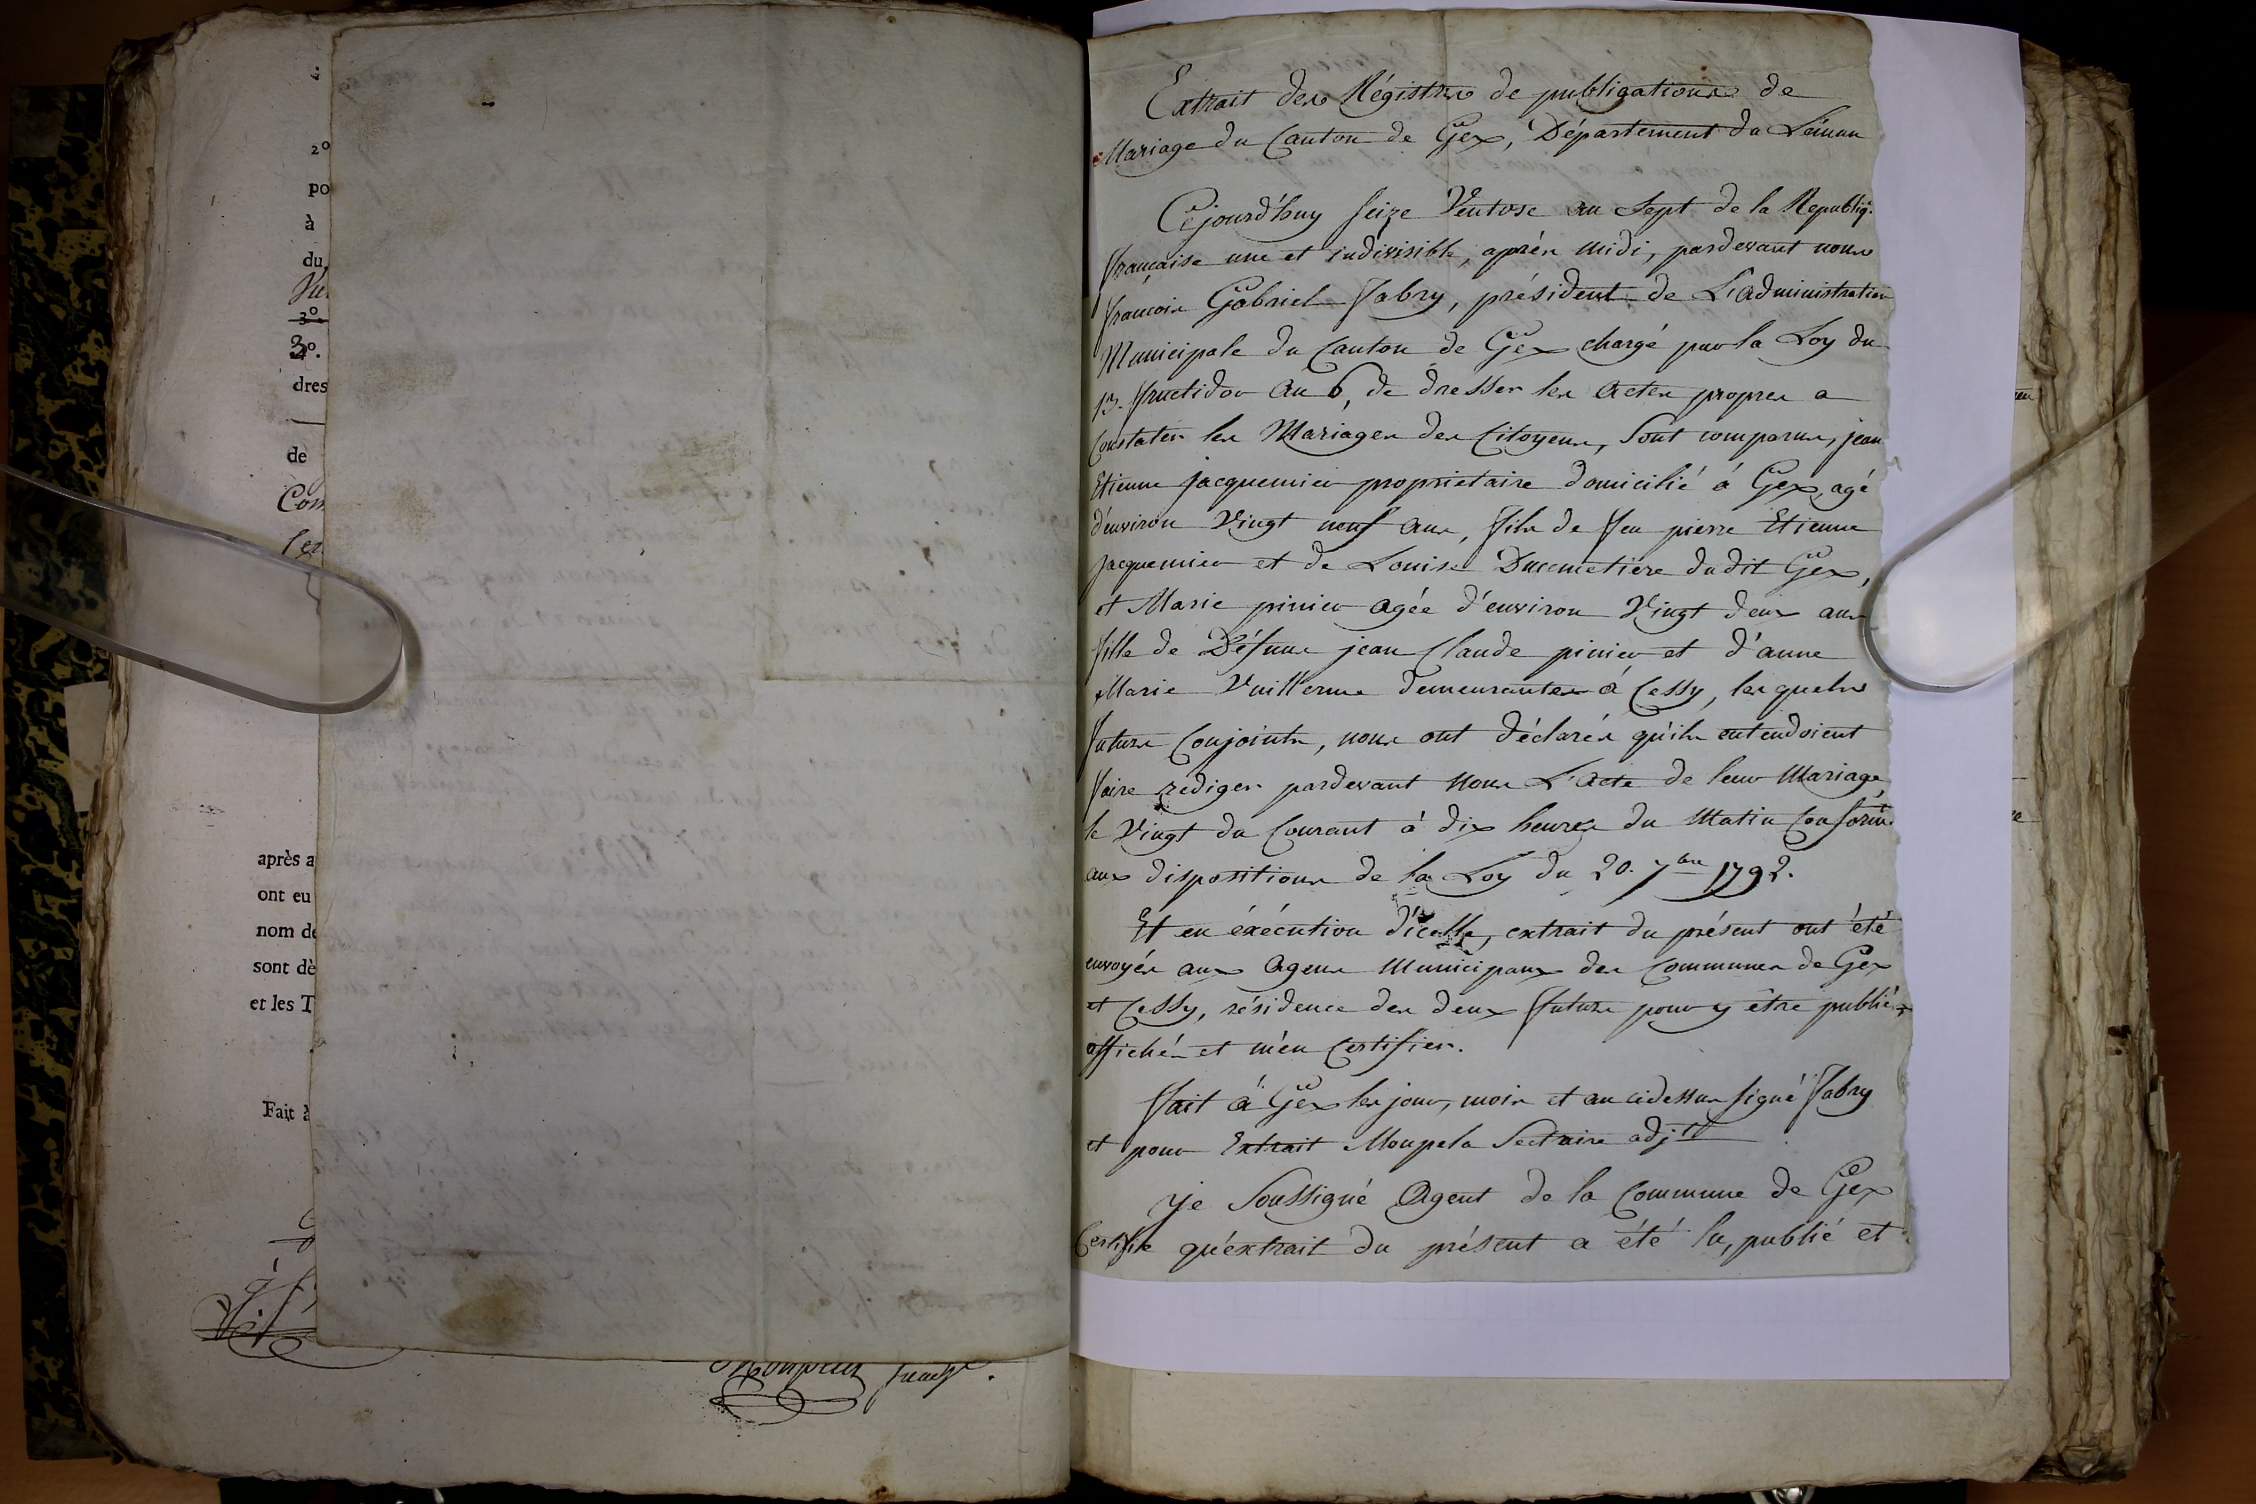 2º
po
à
du
3º
3º.
dres
de
Com
après a
ont eu
nom de
sont dè
et les T
Fait à
Extrait des Régistres de publications de
Mariage du Canton de Gex, Département du Léman
Cejourd'huy seize Ventose an Sept de la Republiq.
française une et indivisible, après midi, pardevant nous
françois Gabriel fabry, président de L'administration
Municipale du Canton de Gex chargé par la Loy du
13. fructidor an 6, de dresser les actes propres a
Constater les Mariages des Citoyens, Sont comparus, jean
Etienne jacquemier proprietaire domicilié á Gex, agé
d'environ Vingt neuf ans, fils de feu pierre Etienne
jacquemier et de Louise Ducimetière dudit Gex,
et Marie pinier agée d'environ Vingt deux ans
fille de Défunt jean Claude pinier et d'anne
Marie Vuillerme demeurantes á Cessy, lesquels
futurs Conjoints, nous ont déclarés qu'ils entendoient
faire rediger pardevant nous L'acte de leur Mariage,
le Vingt du Courant à dix heures du Matin Conform.
aux dispositions de la Loy du 20. 7bre 1792.
Et en éxécution d'icelle, extrait du présent ont été
envoyés aux agens Municipaux des Communes de Gex
et Cessy, résidence des deux futurs pour y être publiés
affichés et m'en Certifier.
fait á Gex les jour, mois et an cidessus signé fabry
et pour Extrait Moupela Sectaire adjt
je Soussigné Agent de la Commune de Gex
Certifie qu'extrait du présent a été lu, publié et